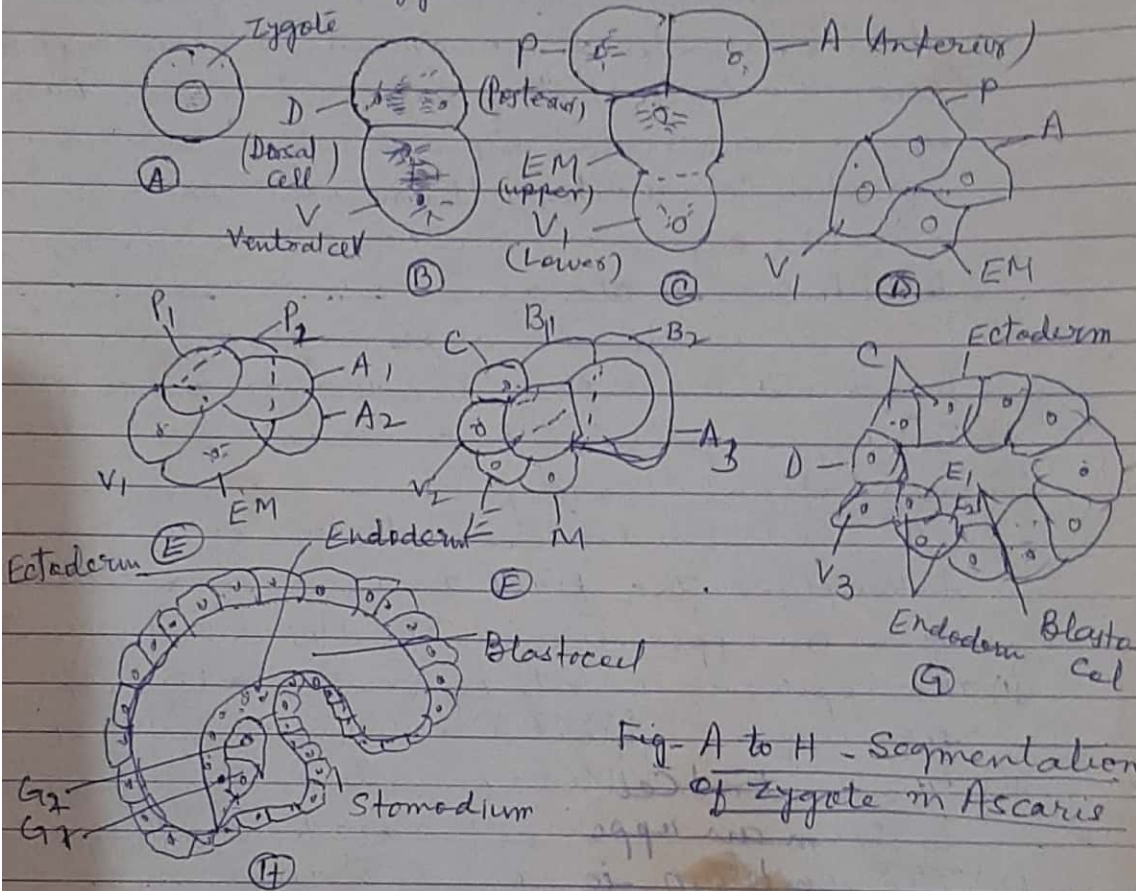 Zygote
A
D
(Dorsal
cell)
V
Ventral cell
B
P
(Posteaur)
A (Anterior)
EM
(upper)
V1
(Lower)
C
P
A
V1
EM
D
P1
P2
A1
A2
V1
EM
E
C
B1
B2
A3
V2
E
M
F
C
Ectoderm
D
E1
E2
V3
Endoderm
Blasto
Cel
G
Ectoderm
Endoderm
Blastocoel
G2
G1
Stomodium
H
Fig- A to H - Segmentation
of Zygote in Ascaris